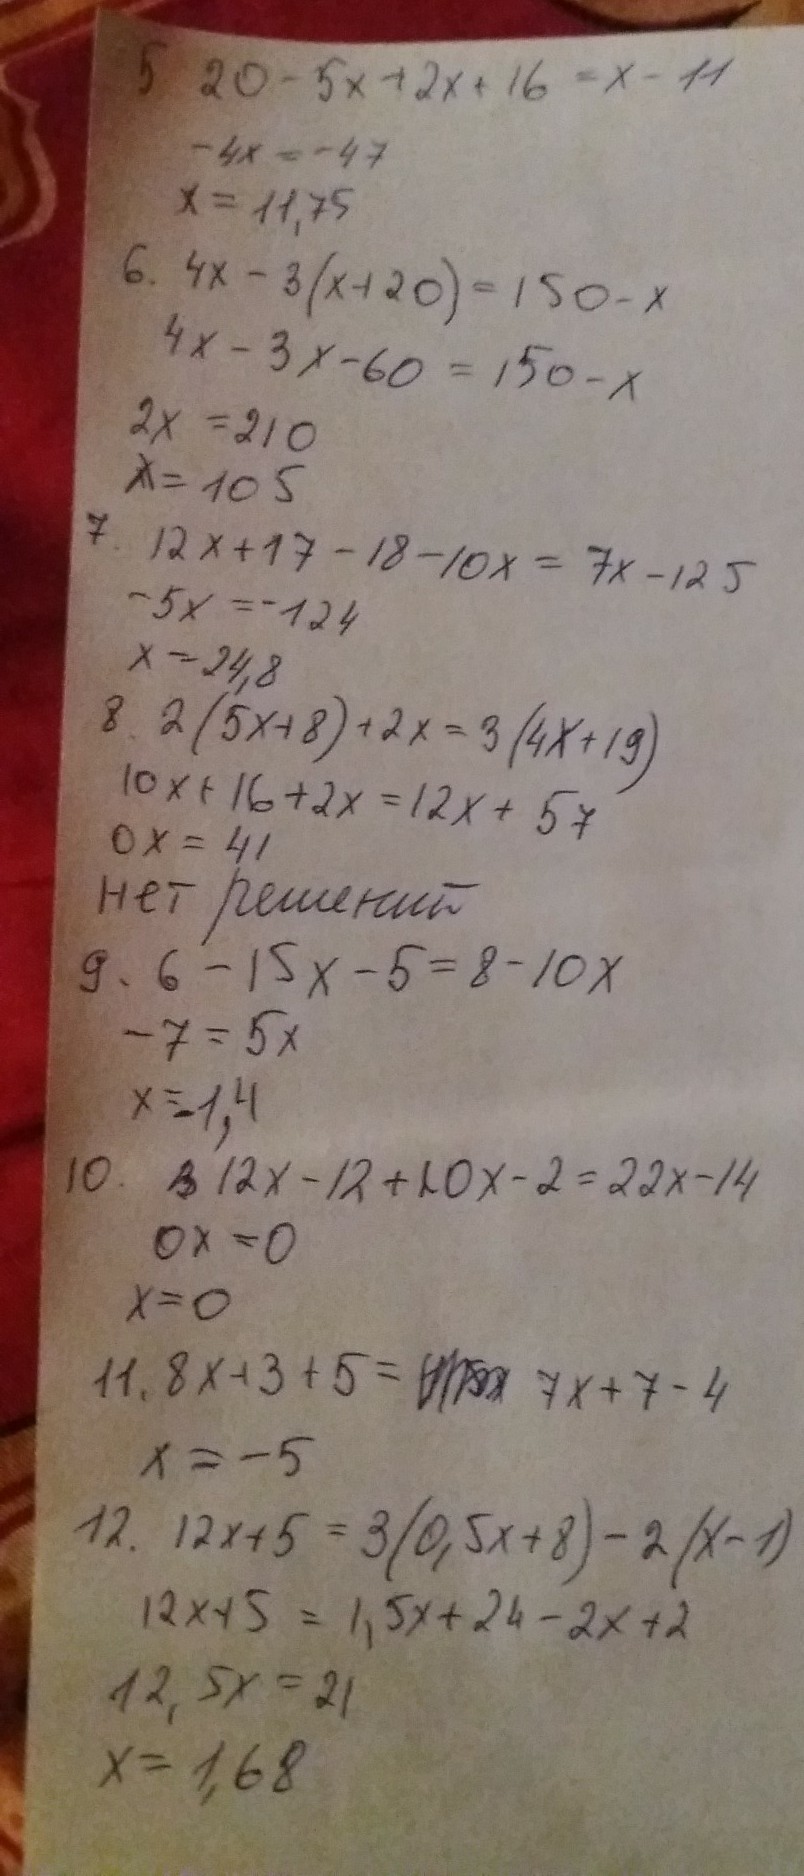 5 20 - 5x + 2x + 16 = x - 11
-4x = -47
x = 11,75
6. 4x - 3(x+20) = 150 - x
4x - 3x - 60 = 150 - x
2x = 210
x = 105
7. 12x + 17 - 18 - 10x = 7x - 125
-5x = -124
x = 24,8
8. 2(5x+8) + 2x = 3(4x+19)
10x + 16 + 2x = 12x + 57
0x = 41
нет решений
9. 6 - 15x - 5 = 8 - 10x
-7 = 5x
x = -1,4
10. 12x - 12 + 10x - 2 = 22x - 14
0x = 0
x = 0
11. 8x + 3 + 5 = 7x + 7 - 4
x = -5
12. 12x + 5 = 3(0,5x+8) - 2(x-1)
12x + 5 = 1,5x + 24 - 2x + 2
12,5x = 21
x = 1,68